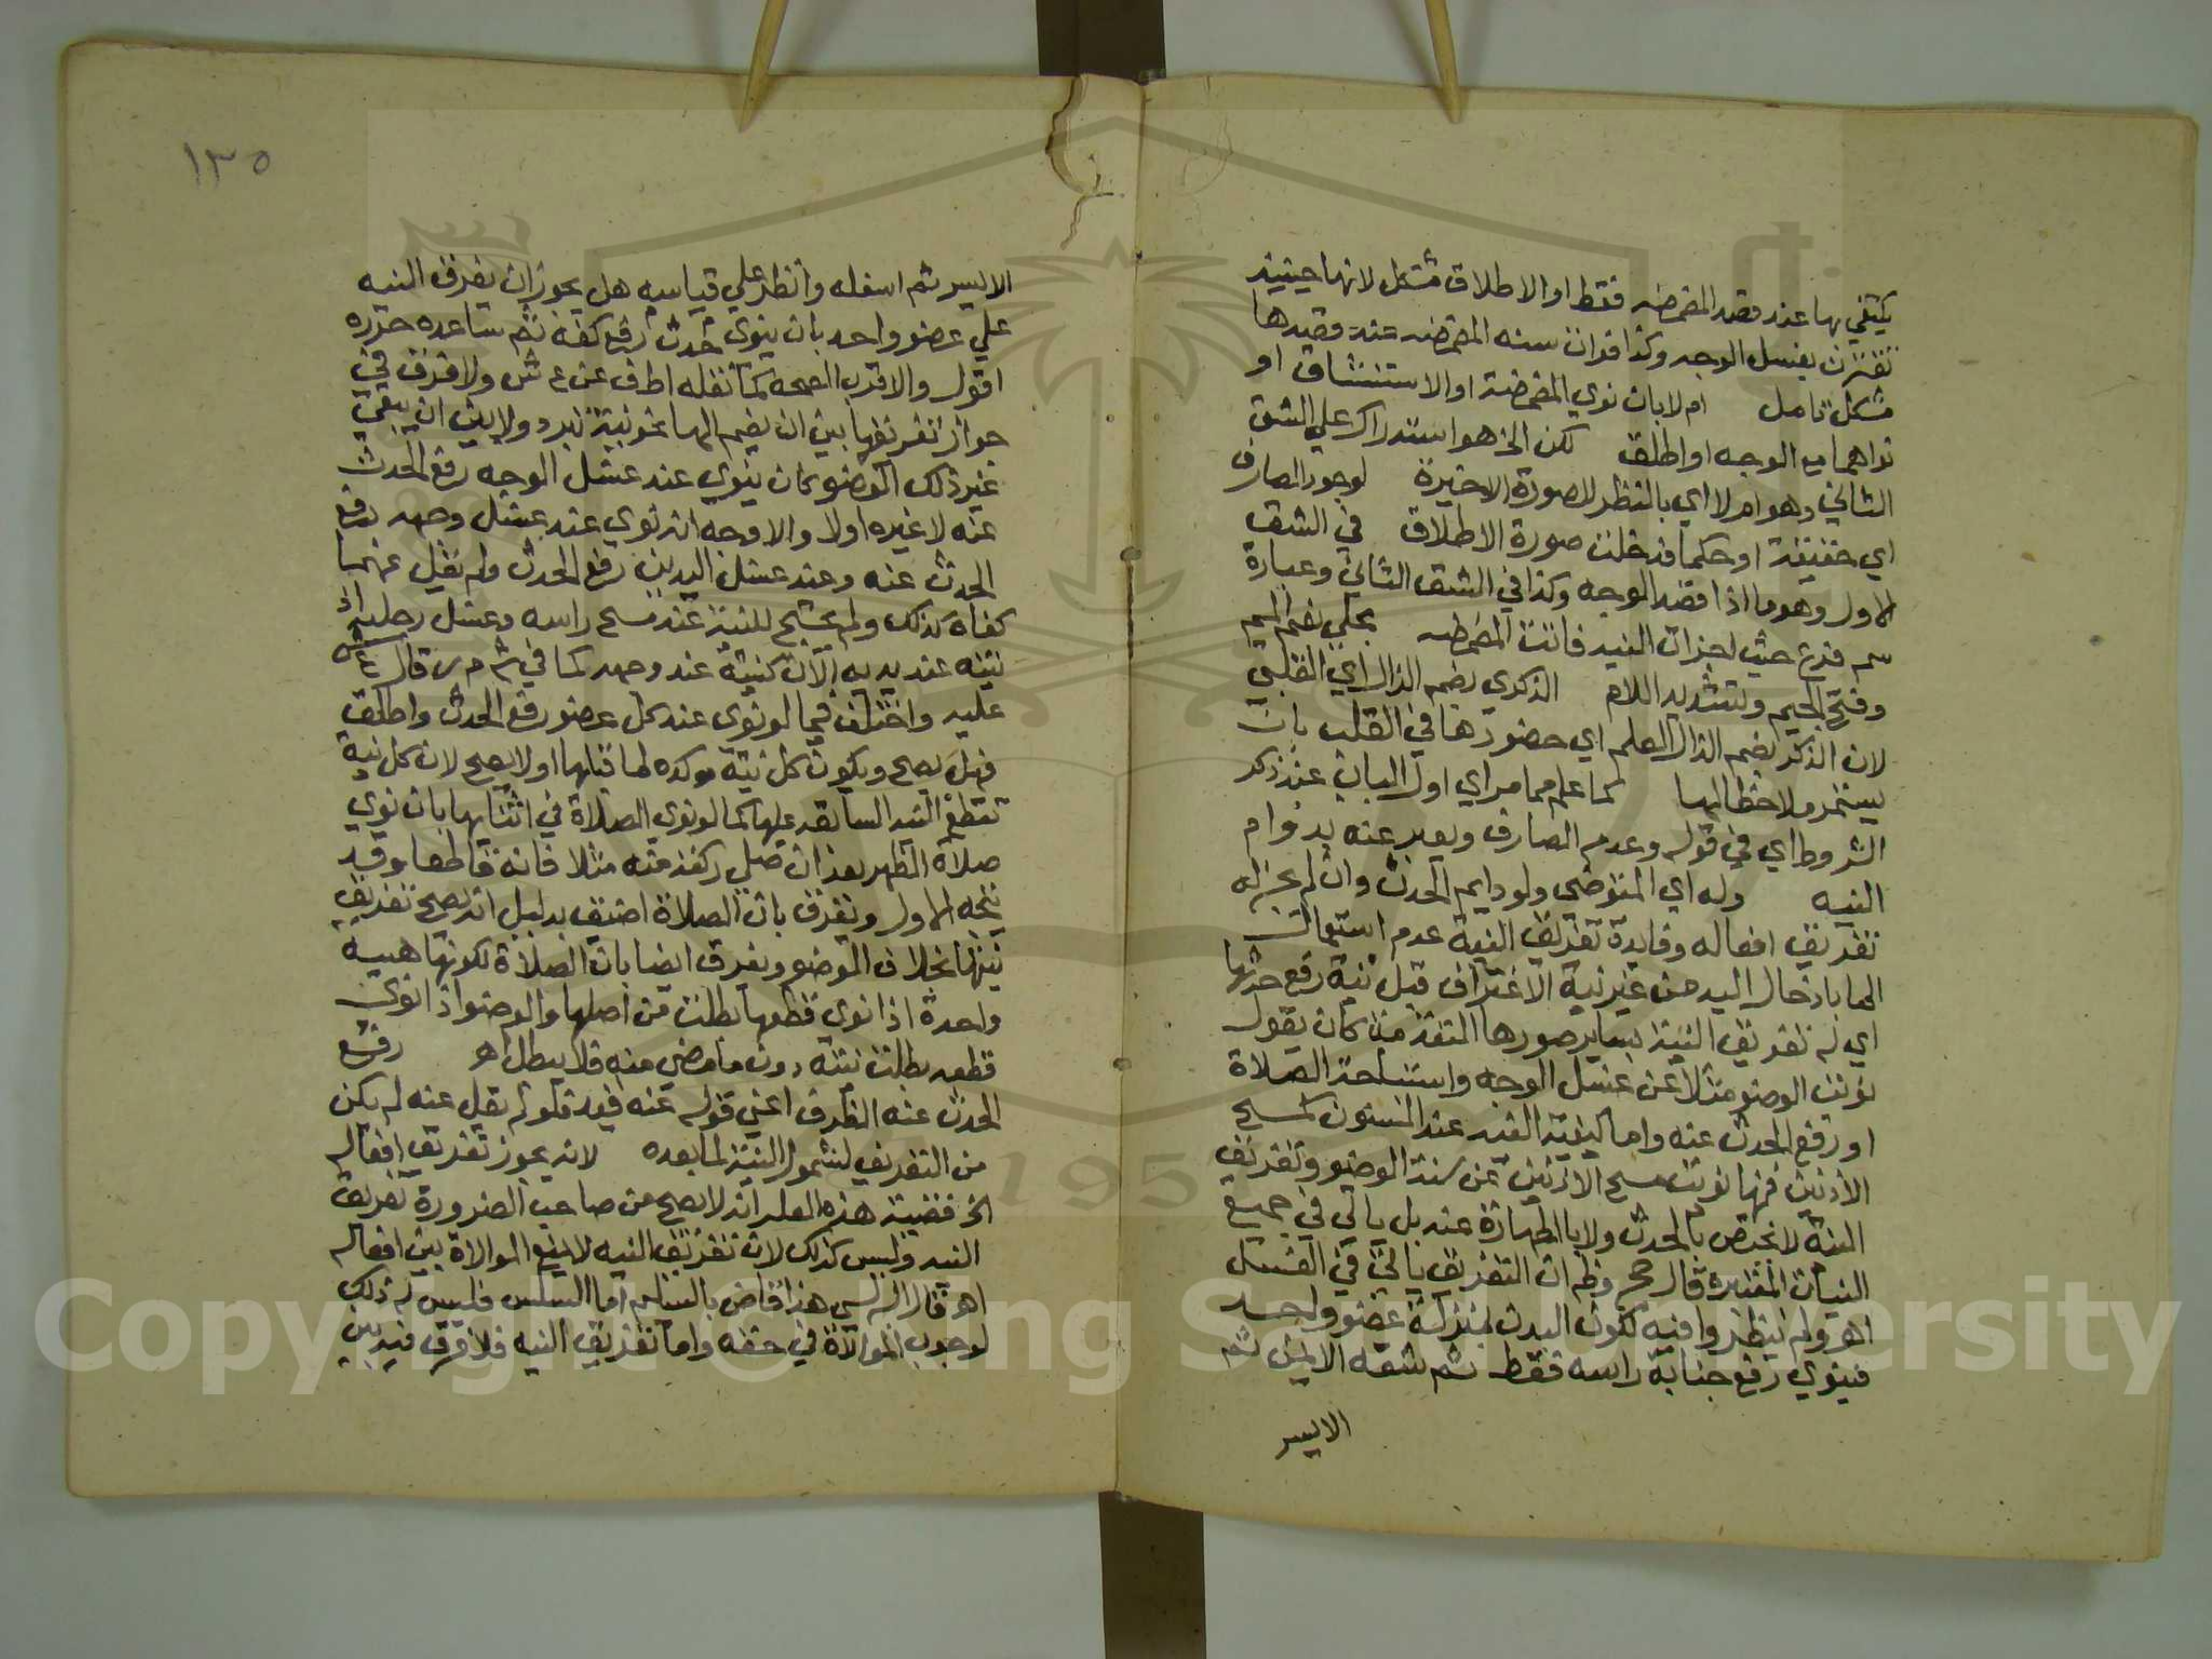 يكتفي بها عند قصد المضمضه فقط او الاطلاق مشكل لانها حينيذ
تقترن بغسل الوجه وكذا فوات سنه المضمضه عند قصدها
مشكل تامل ام لا بان نوي المضمضة او الاستنشاق او
نواهما مع الوجه او اطلق لكن الخ هو استدراك علي الشق
الثاني وهو ام لا اي بالنظر للصورة الاخيرة لوجود الصارف
اي حقيقة او حكما فدخلت صورة الاطلاق في الشق
الاول وهو ما اذا قصد الوجه وكذا في الشق الثاني وعبارة
سم فرع حيث اجزات النيه فاتت المضمضه مجلي بضم الميم
وفتح الجيم وتشديد اللام الذكري بضم الذال اي القلبي
لان الذكر بضم الذال العلم اي حضورها في القلب بان
يستمر ملاحظا لها كما علم مما مر اي اول الباب عند ذكر
الشروط اي في قوله وعدم الصارف ويعبر عنه بدوام
النيه وله اي المتوضي ولو دايم الحدث وان لم يجز له
تفريق افعاله وفايدة تفريق النية عدم استعمال
الما بادخال اليد من غير نية الاغتراف قبل نية رفع حدثها
اي له تفريق النية بساير صورها المتقدمة كان يقول
نويت الوضو مثلا عن غسل الوجه واستباحة الصلاة
او رفع الحدث عنه واما كيفية النيه عند المسنون كمسح
الاذنين فمنها نويت مسح الاذنين عن سنة الوضو وتفريق
النية لا يختص بالحدث ولا بالطهارة عنه بل ياتي في جميع
النيات المعتبره قال حج وظ ان التفريق ياتي في الغسل
اهـ ولم ينظروا فيه لكون البدن بمنزلة عضو واحد
فينوي رفع جنابة راسه فقط ثم شقه الايمن ثم
الايسر
١٣٥
الايسر ثم اسفله وانظر علي قياسه هل يجوز ان يفرق النيه
علي عضو واحد بان ينوي حدث رفع كفه ثم ساعده حرره
اقول والاقرب الصحه كما نقله اطف عن ع ش ولا فرق في
جواز تفريقها بين ان يضم لها نحو نية تبرد ولا بين ان يبقي
غير ذلك الوضو كان ينوي عند غسل الوجه رفع الحدث
عنه لا غيره اولا والاوجه انه لو نوي عند غسل وجهه رفع
الحدث عنه وعند غسل اليدين رفع الحدث ولم يقل عنهما
كفاه كذلك ولم يحتج للنية عند مسح راسه وغسل رجليه اذ
نيته عند يديه الان كنيته عند وجهه كما في ش م ر قال ع ش
عليه واختلف فيما لو نوي عند كل عضو رفع الحدث واطلق
فهل يصح ويكون كل نية موكده لما قبلها او لا يصح لان كل نية
تقطع النيه السابقه عليها كما لو نوي الصلاة في اثنايها بان نوي
صلاة الظهر بعد ان صلي ركعة منه مثلا فانه قاطعا وقد
يتجه الاول ويفرق بان الصلاة اضيق بدليل انه يصح تفريق
نيتها بخلاف الوضو ويفرق ايضا بان الصلاة لكونها هيية
واحدة اذا نوي قطعها بطلت من اصلها والوضو اذا نوي
قطعه بطلت نيته دون ما مضي منه فلا يبطل اهـ رفع
الحدث عنه الظرف اعني قوله عنه قيد فلو لم يقل عنه لم يكن
من التفريق لشمول النية لما بعده لانه يجوز تفريق افعاله
الخ قضية هذه العله انه لا يصح من صاحب الضرورة تفريق
النيه وليس كذلك لان تفريق النيه لا يمنع الموالاة بين افعاله
اهـ قال هذا خاص بالسليم اما السلس فليس له ذلك
لوجوب الموالاة في حقه واما تفريق النيه فلا فرق فيه بين
Copyright © King Saud University
195